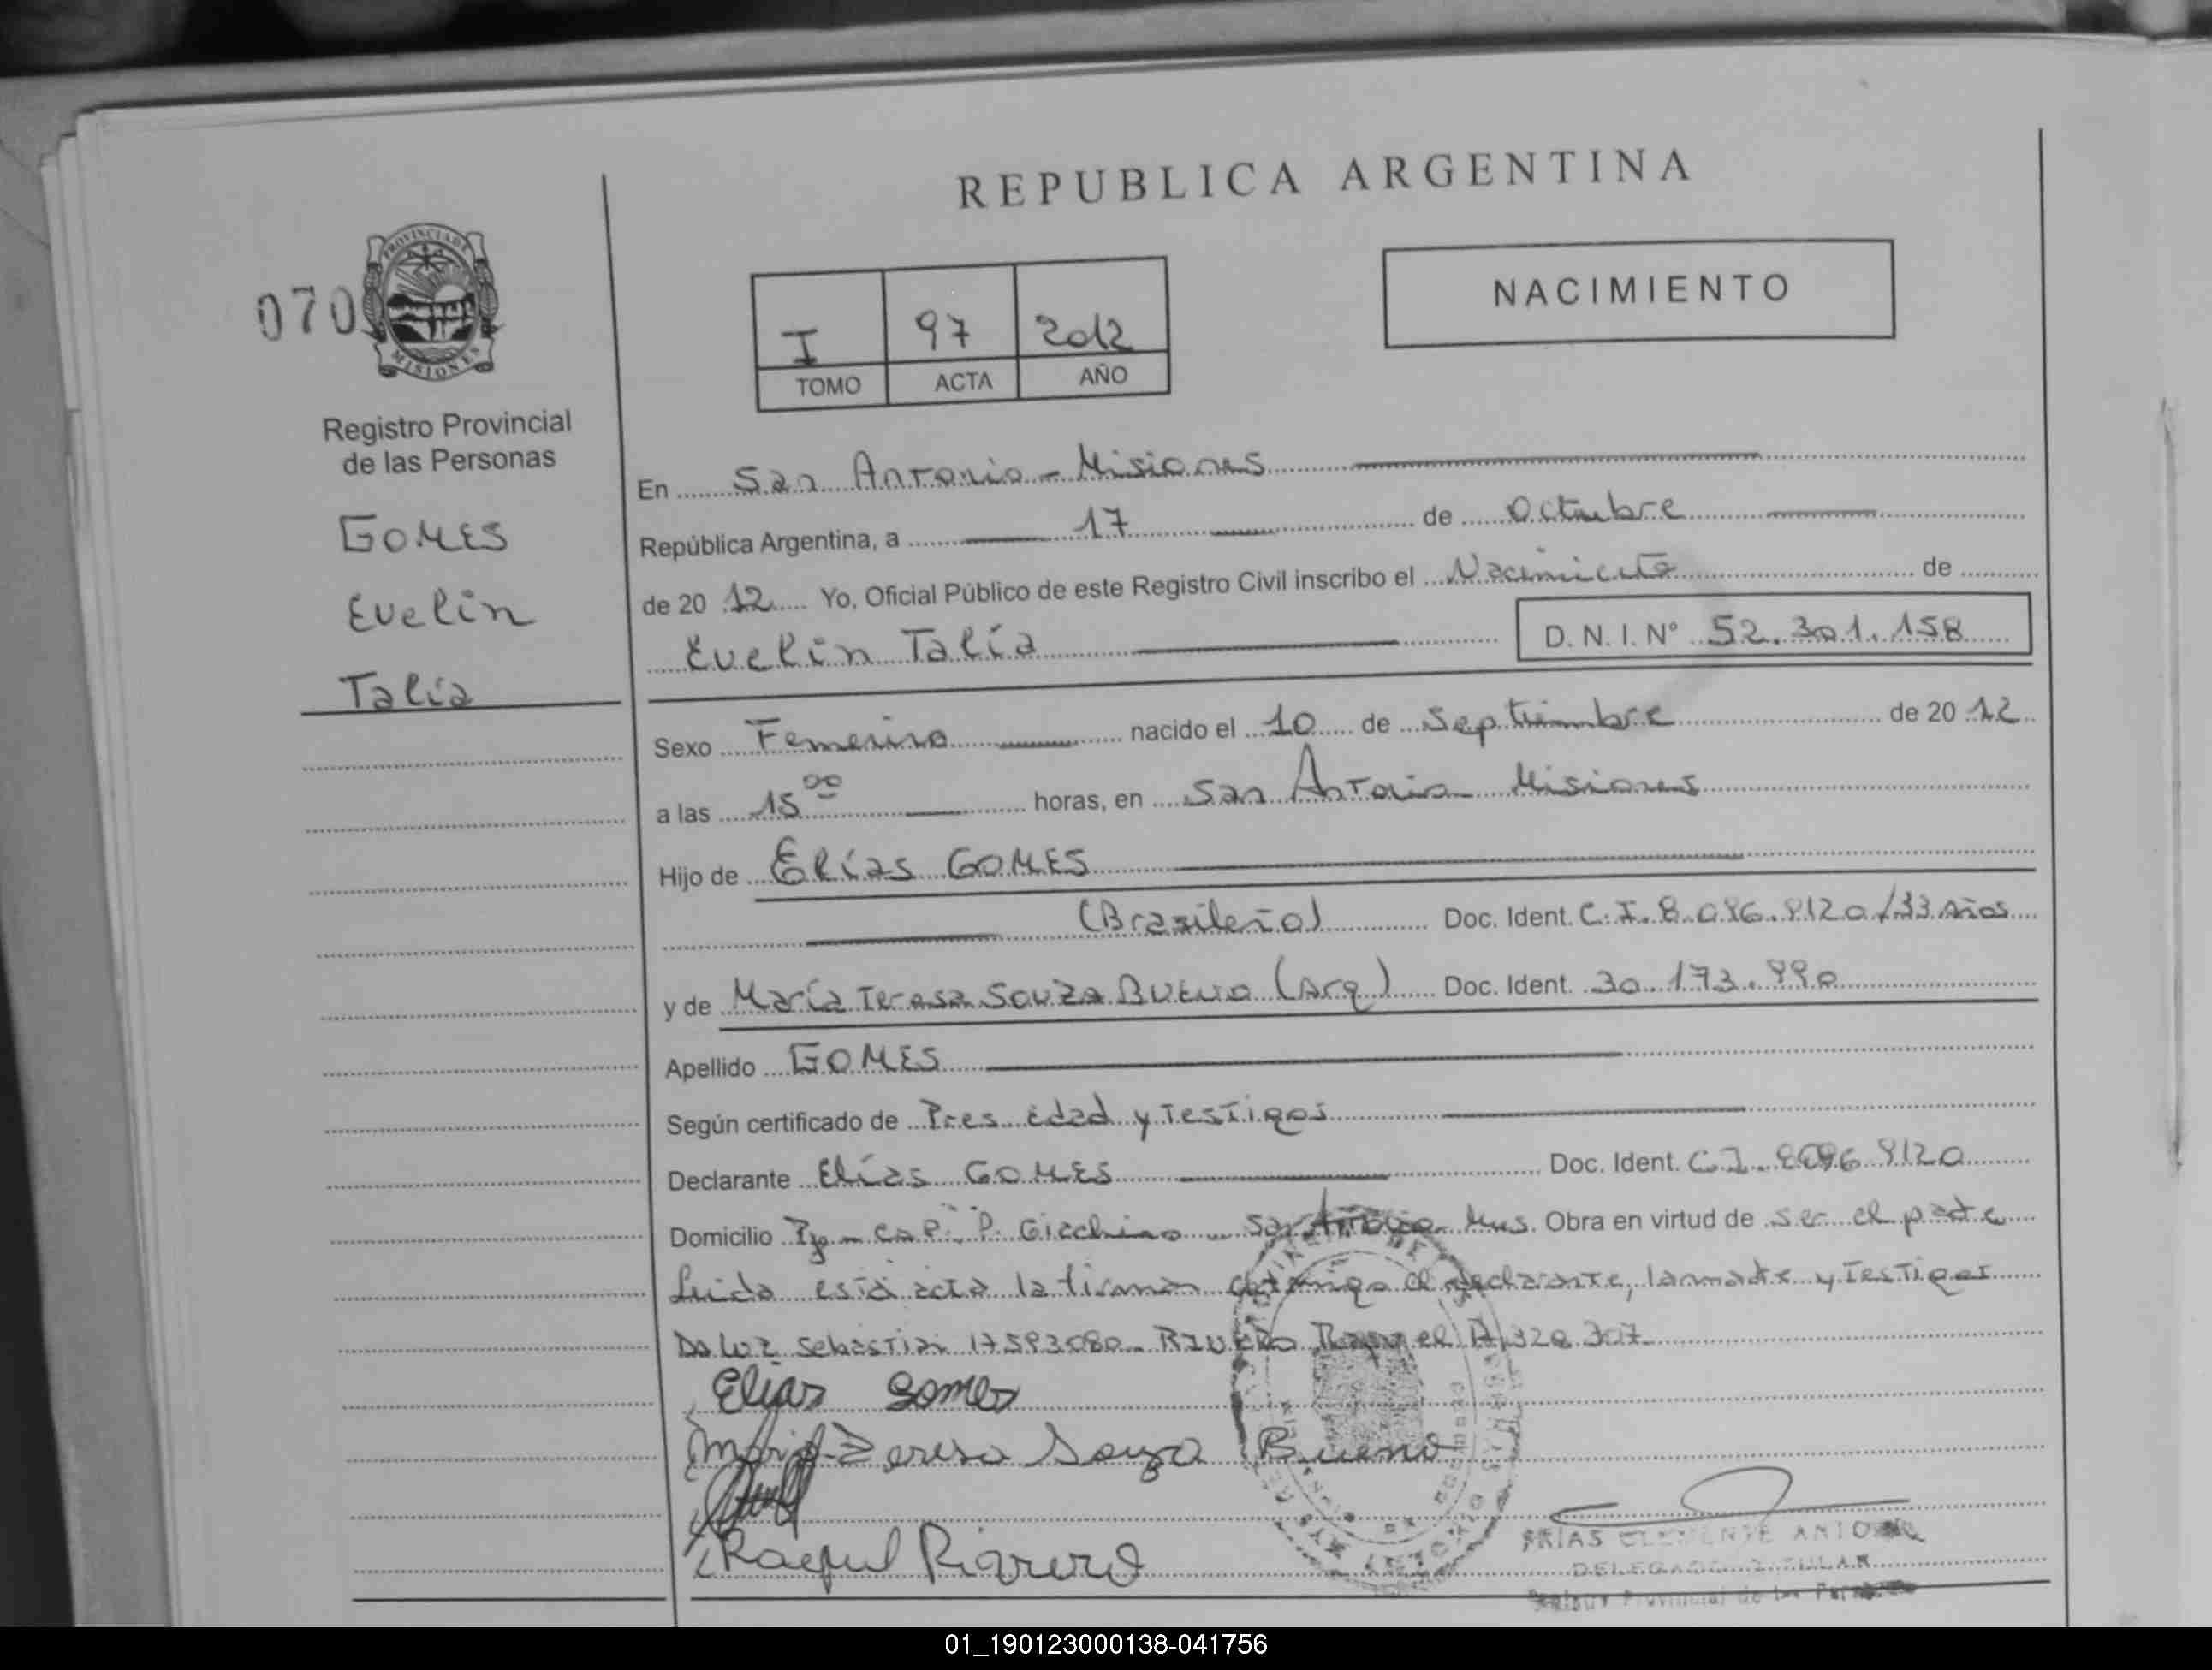 REPUBLICA ARGENTINA
NACIMIENTO
070
PROVINCIA DE
MISIONES
I 97 2012
TOMO ACTA AÑO
Registro Provincial
de las Personas
GOMES
Evelin
Talía
En San Antonio - Misiones
República Argentina, a 17 de Octubre
de 20 12 Yo, Oficial Público de este Registro Civil inscribo el Nacimiento de
Evelin Talía D.N.I. N° 52.301.158
Sexo Femenino nacido el 10 de Septiembre de 20 12
a las 15 00 horas, en San Antonio Misiones
Hijo de Elías GOMES
(Brasileño) Doc. Ident. C.I. 8.096.9120/33 Años
y de María Teresa SOUZA BUENO (Arg) Doc. Ident. 30.173.990
Apellido GOMES
Según certificado de Pres edad y Testigos
Declarante Elías GOMES Doc. Ident. C.I. 8096 9120
Domicilio San Antonio Mns. Obra en virtud de ser el padre
Leida esta acta la firman conmigo el declarante, la madre y Testigos
Da Luz Sebastian 17593080 - RIVERO Raquel
Elias Gomes
Maria Teresa Souza Bueno
Raquel Rivero
FRIAS CLEMENTE ANTONIO
DELEGADO TITULAR
Registro Provincial de las Personas
01_190123000138-041756